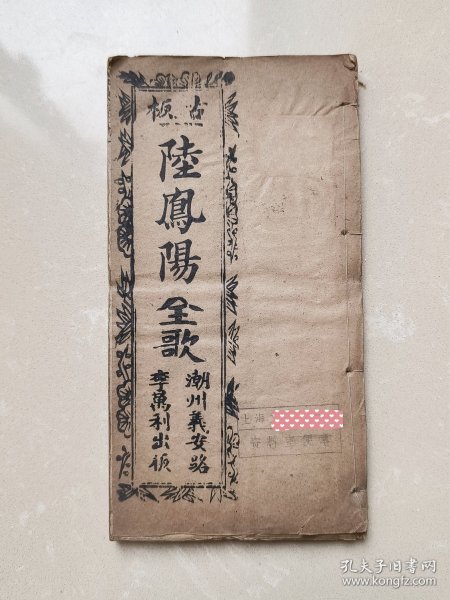 古板
陸鳳陽全歌
潮州義安路
李萬利出板
上海
資料
孔夫子旧书网
www.kongfz.com